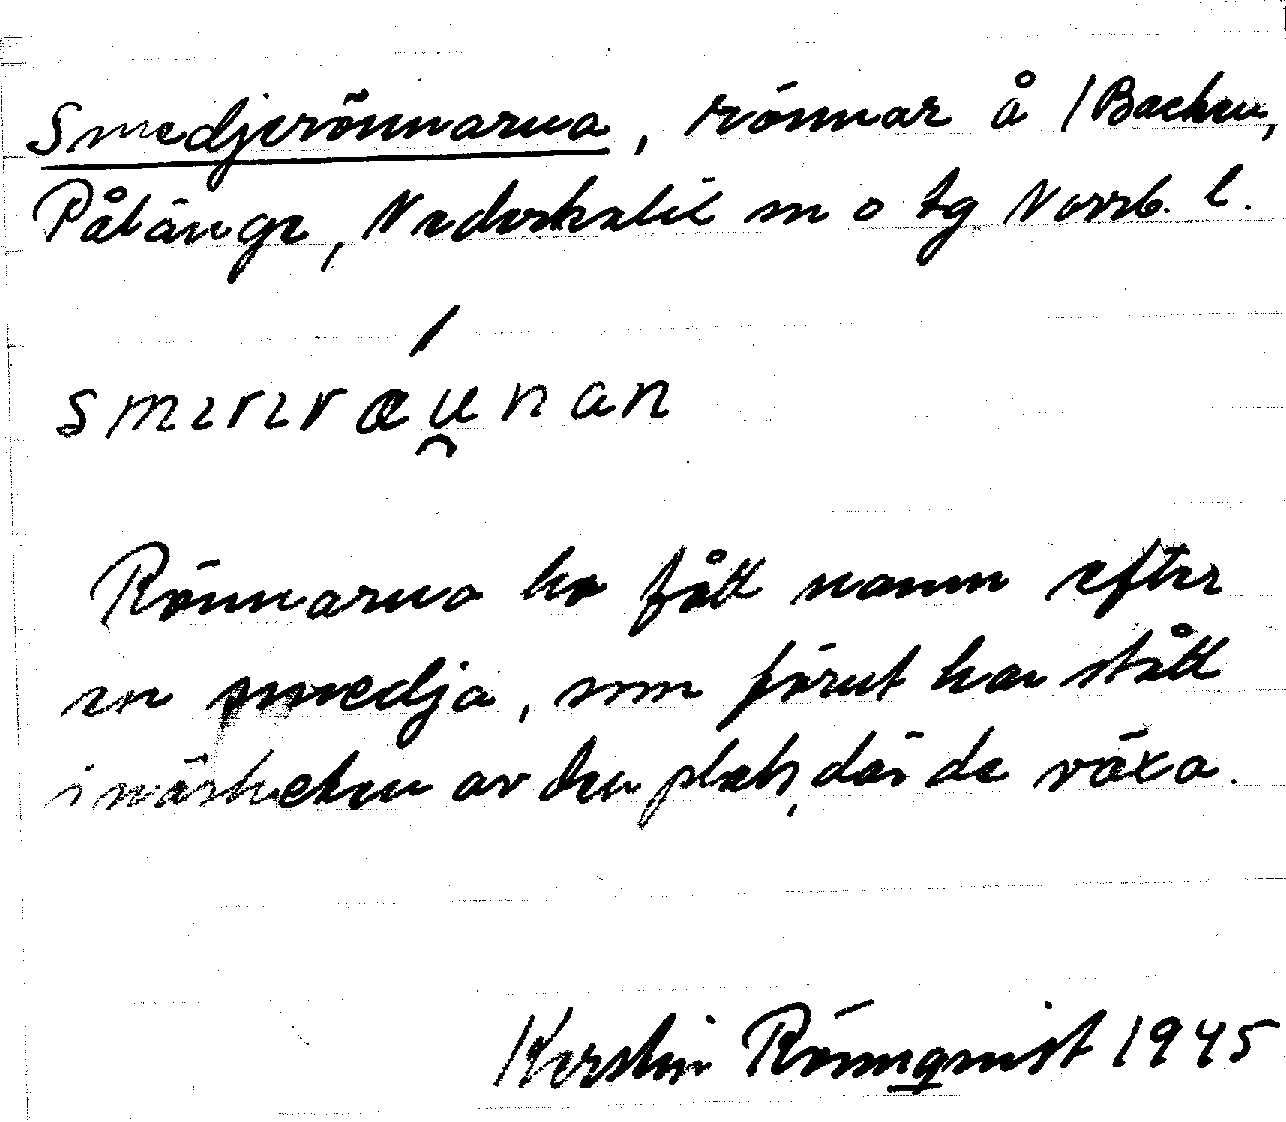 Smedjerönnarna, rönnar å 1 Backen,
Pålänge, Nederkalix sn o tg Norrb. l.
smɩrɩrǽu̯nan
Rönnarna ha fått namn efter
en smedja, som förut har stått
i närheten av den plats, där de växa.
Kerstin Rönnqvist 1945